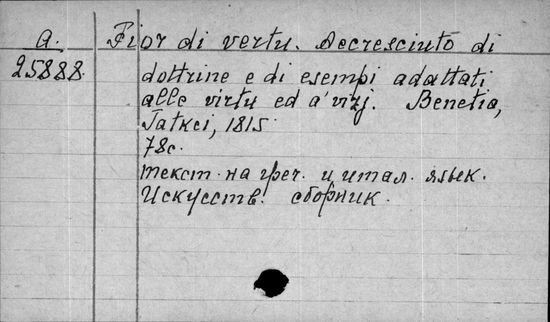 A. Fior di vertu. Accresciuto di
25888. dottrine e di esempi adattati
alle virtu ed a' vizj. Benetia,
1815
78с.
текст на греч. и итал. язык.
Искусств. сборник.